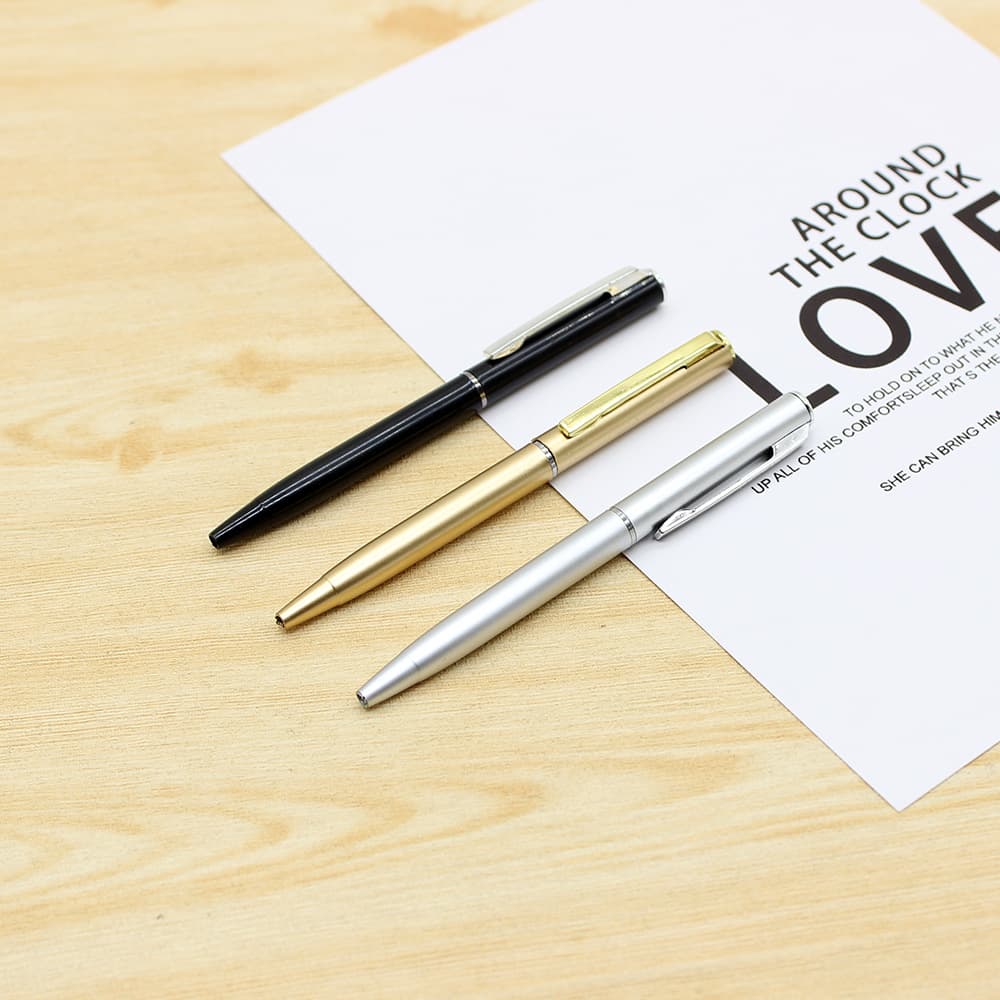 AROUND
THE CLOCK
LOVE
TO HOLD ON TO WHAT HE N
UP ALL OF HIS COMFORTSLEEP OUT IN TH
THAT S THE
SHE CAN BRING HIM